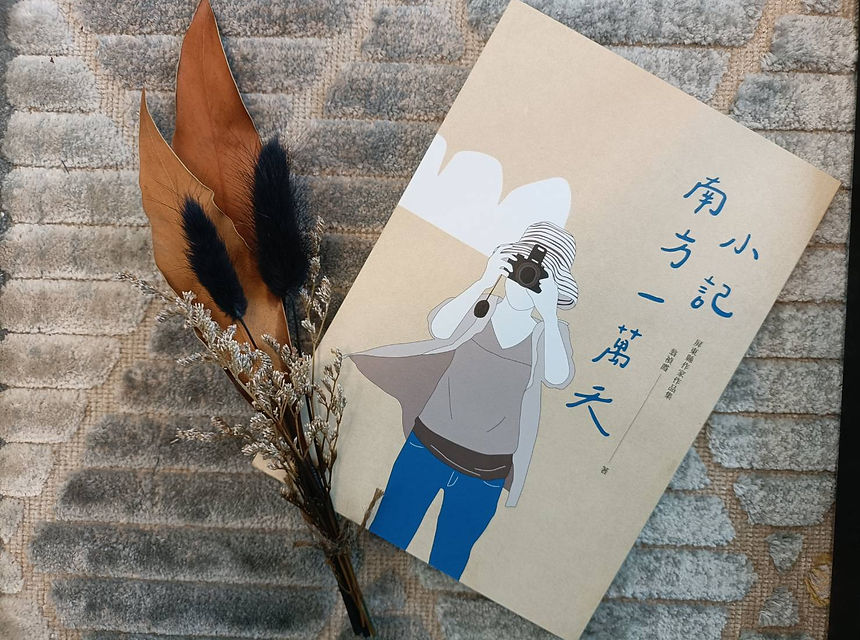 小記
南方一萬天
屏東縣作家作品集
翁禎霞 著